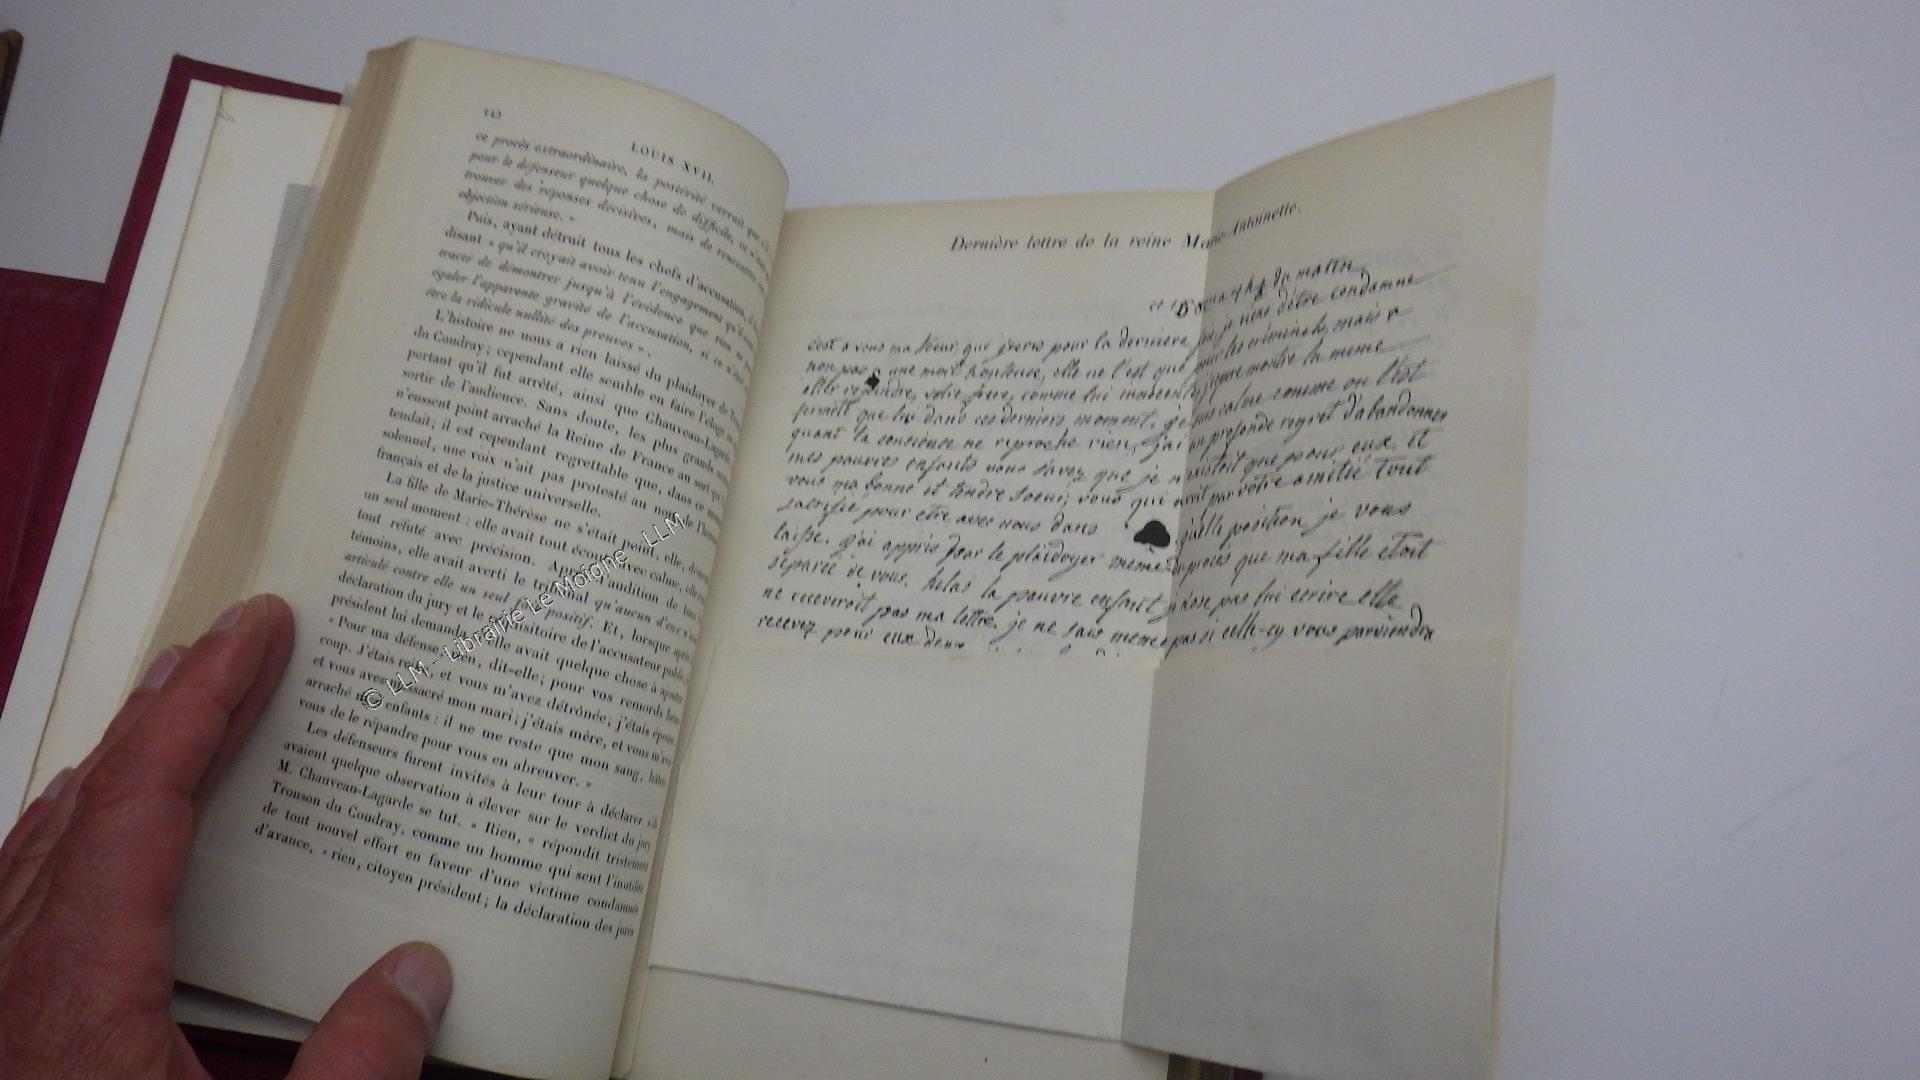 142
LOUIS XVII.
ce procès extraordinaire, la postérité verrait que s'il
pour le défenseur quelque chose de difficile, ce n'était
trouver des réponses décisives, mais de rencontrer
objection sérieuse. »
Puis, ayant détruit tous les chefs d'accusation,
disant « qu'il croyait avoir tenu l'engagement qu'il
tracté de démontrer jusqu'à l'évidence que rien ne
égaler l'apparente gravité de l'accusation, si ce n'est
être la ridicule nullité des preuves ».
L'histoire ne nous a rien laissé du plaidoyer de
du Coudray; cependant elle semble en faire l'éloge
portant qu'il fut arrêté, ainsi que Chauveau-Lagarde
sortir de l'audience. Sans doute, les plus grands
n'eussent point arraché la Reine de France au sort qui
tendait; il est cependant regrettable que, dans ce
solennel, une voix n'ait pas protesté au nom de
français et de la justice universelle.
La fille de Marie-Thérèse ne s'était point, elle,
un seul moment : elle avait tout écouté avec calme,
tout réfuté avec précision. Après l'audition de
témoins, elle avait averti le tribunal qu'aucun d'eux
articulé contre elle un seul fait positif. Et, lorsque
déclaration du jury et le réquisitoire de l'accusateur public,
président lui demanda si elle avait quelque chose à
« Pour ma défense, rien, dit-elle; pour vos remords
coup. J'étais reine, et vous m'avez détrônée; j'étais
et vous avez massacré mon mari; j'étais mère, et vous
arraché mes enfants : il ne me reste que mon sang,
vous de le répandre pour vous en abreuver. »
Les défenseurs furent invités à leur tour à déclarer s'ils
avaient quelque observation à élever sur le verdict du jury
M. Chauveau-Lagarde se tut. « Rien, » répondit tristement
Tronson du Coudray, comme un homme qui sent l'inutilité
de tout nouvel effort en faveur d'une victime condamnée
d'avance, « rien, citoyen président; la déclaration des jurés
© LLM - Librairie Le Moigne - LLM
Dernière lettre de la reine Marie-Antoinette.
ce du matin
c'est a vous ma soeur, que j'ecris pour la derniere fois, je viens d'etre condamnée
non pas a une mort honteuse, elle ne l'est que pour les criminels, mais a
aller rejoindre votre frere, comme lui innocente, j'espere montrer la meme
fermeté que lui dans ces derniers moment. je suis calme comme on l'est
quant la conscience ne reproche rien, j'ai un profonde regret d'abandonner
mes pauvres enfants vous savez que je n'existoit que pour eux, et
vous ma bonne et tendre soeur, vous qui avoit par votre amitié tout
sacrifie pour etre avec nous dans quelle position je vous
laisse. j'ai appris par le plaidoyer meme du procès que ma fille etoit
separée de vous. helas la pauvre enfant je n'ose pas lui ecrire elle
ne receveroit pas ma lettre, je ne sais meme pas si celle-cy vous parviendra
recevez pour eux deux